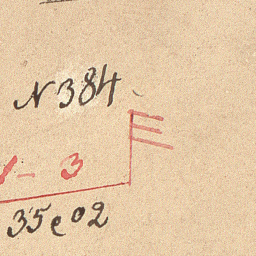 N 384
1 - 3
35e02